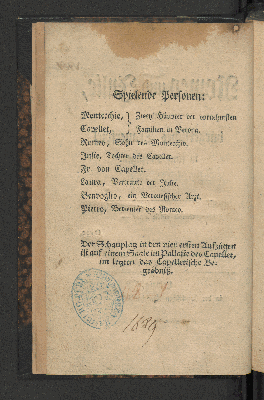 Spielende Personen:
Montecchio, } Zwey Häupter der vornehmsten
Capellet, } Familien in Verona.
Romeo, Sohn des Montecchio.
Julie, Tochter des Capellet.
Fr. von Capellet.
Laura, Vertraute der Julie.
Benvoglio, ein Veronesischer Arzt.
Pietro, Bedienter des Romeo.
Der Schauplatz in den vier ersten Aufzügen
ist auf einem Saale im Pallaste des Capellet,
im letzten das Capelletische Be-
gräbniß.
1829